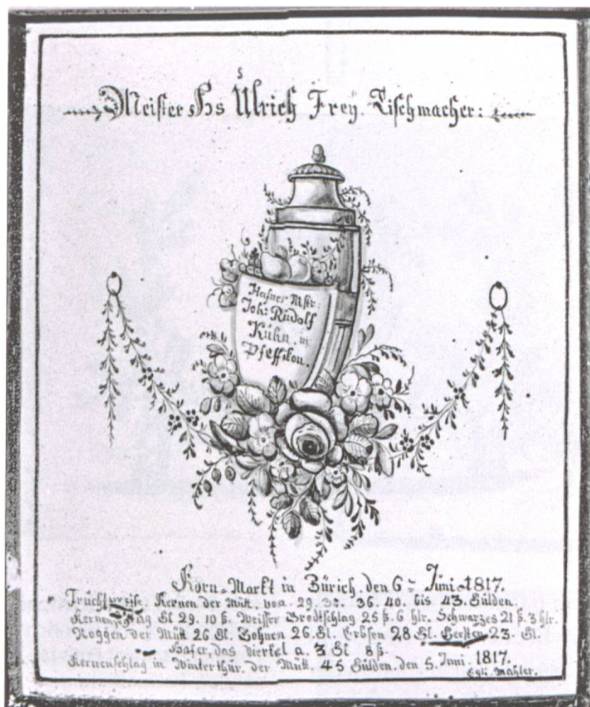 Meister Hs Ulrich Frey. Tischmacher:
Hafner Mstr:
Joh: Rudolf
Kuhn. in
Pfeffikon.
Korn-Markt in Zürich. den 6= Juni. 1817.
Fruchtpreise. Kernen der Mütt. von. 29. 32. 36. 40. bis 43. Gulden.
Gl 29. 10 ß. Weisser Brodtschlag 25 ß. 6 hlr. Schwarzes 21 ß. 3 hlr.
Roggen der Mütt 26 Gl. Bohnen 26. Gl. Erbsen 28 Gl. Gersten 23. Gl.
Hafer, das viertel a. 3 Gl 8 ß.
Kernenschlag in Winterthur. der Mütt. 45 Gulden. den 5. Juni. 1817.
Egli. Mahler.